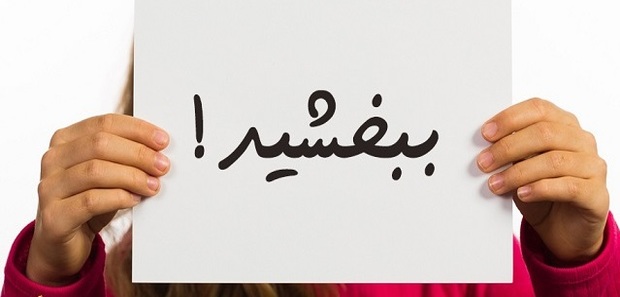 ببخشید!